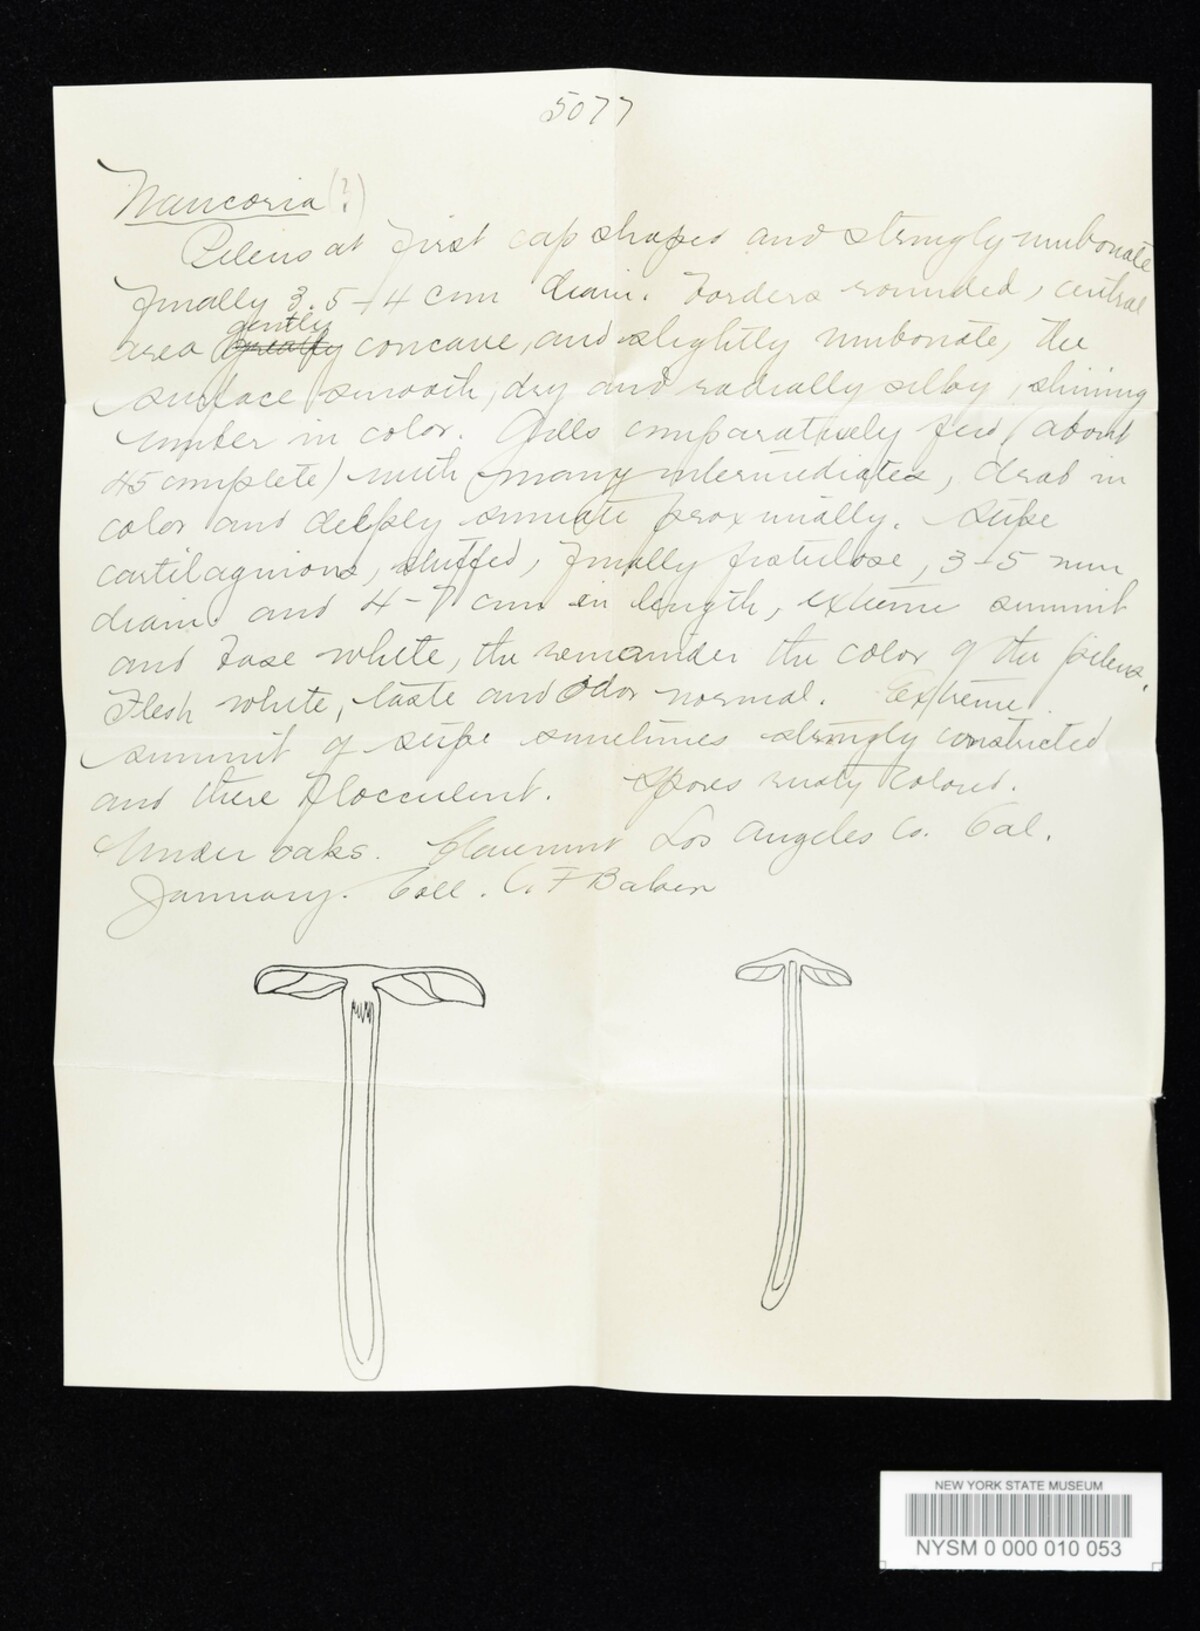 5077
Naucoria (?)
Pileus at first cap shaped and strongly umbonate
finally 3.5-4 cm diam. borders rounded, central
area greatly gently concave, and slightly umbonate, the
surface smooth, dry and radially silky, shining
umber in color. Gills comparatively few (about
45 complete) with many intermediates, drab in
color and deeply sinuate proximally. Stipe
cartilaginous, stuffed, finally fistulose, 3-5 mm
diam. and 4-7 cm in length, extreme summit
and base white, the remainder the color of the pileus.
Flesh white, taste and odor normal. Extreme
summit of stipe sometimes strongly constricted
and there flocculent. Spores rusty colored.
Under oaks. Claremont Los Angeles Co. Cal.
January. Coll. C. F Baker
NEW YORK STATE MUSEUM
NYSM 0 000 010 053